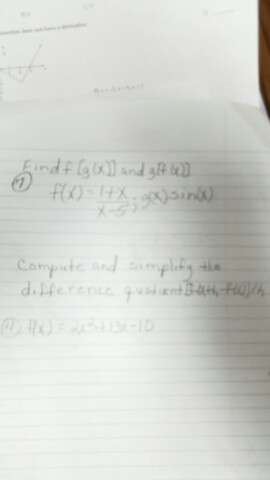 Find f [g(x)] and g[f(x)]
7
f(x) = 1+x / x-5 ; g(x) sin(x)
Compute and simplify the
difference quotient [f(x+h)-f(x)]/h
11 f(x) = 2x²+13x-10